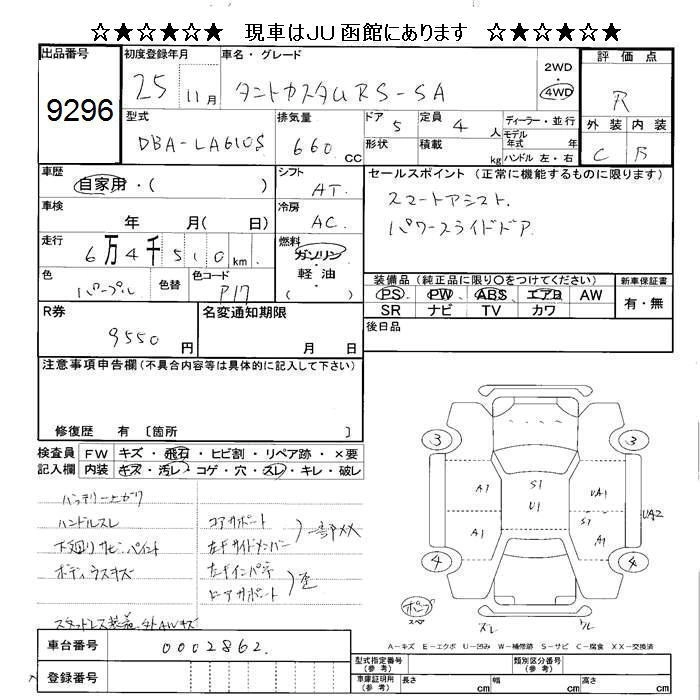 ☆★☆★☆★ 現車はJU函館にあります ☆★☆★☆★
出品番号
9296
初度登録年月
25 11月
車名・グレード
タントカスタムRS-SA
2WD
・
4WD
評価点
R
外装 内装
C B
型式
DBA-LA610S
排気量
660 CC
ドア
5
形状
定員
4 人
積載
kg
ディーラー・並行
モデル
年式 年
ハンドル 左・右
車歴
自家用・( )
シフト
AT
セールスポイント (正常に機能するものに限ります)
スマートアシスト.
パワースライドドア
車検
年 月( 日)
冷房
AC
走行
6万4千510km
燃料
ガソリン
・
軽油
( )
色
パープル
色替
色コード
P17
装備品(純正品に限り○をつけてください)
PS PW ABS エアB AW
SR ナビ TV カワ
新車保証書
有・無
R券
9550円
名変通知期限
月 日
後日品
注意事項申告欄(不具合内容等は具体的に記入して下さい)
修復歴 有 〔箇所 〕
検査員
記入欄
FW キズ・飛石・ヒビ割・リペア跡・×要
内装 キズ・汚レ・コゲ・穴・スレ・キレ・破レ
バッテリー上がり
ハンドルスレ
下廻りサビ.ペイント
ボディラスキズ
スタットレス装着
コアサポート
左Fサイドメンバー
一部XX
左Fインパネ
コアサポート
歪
3 3
4 4
A1 S1 U1 UA1
A1 S1 A1 UA2
ポンプ
スペア
ズレ ワレ
A-キズ E-エクボ U-凹み W-補修跡 S-サビ C-腐食 XX-交換済
車台番号
0002862.
登録番号
型式指定番号
(参考)
類別区分番号
(参考)
車庫証明用
(参考)
長さ cm 幅 cm 高さ cm